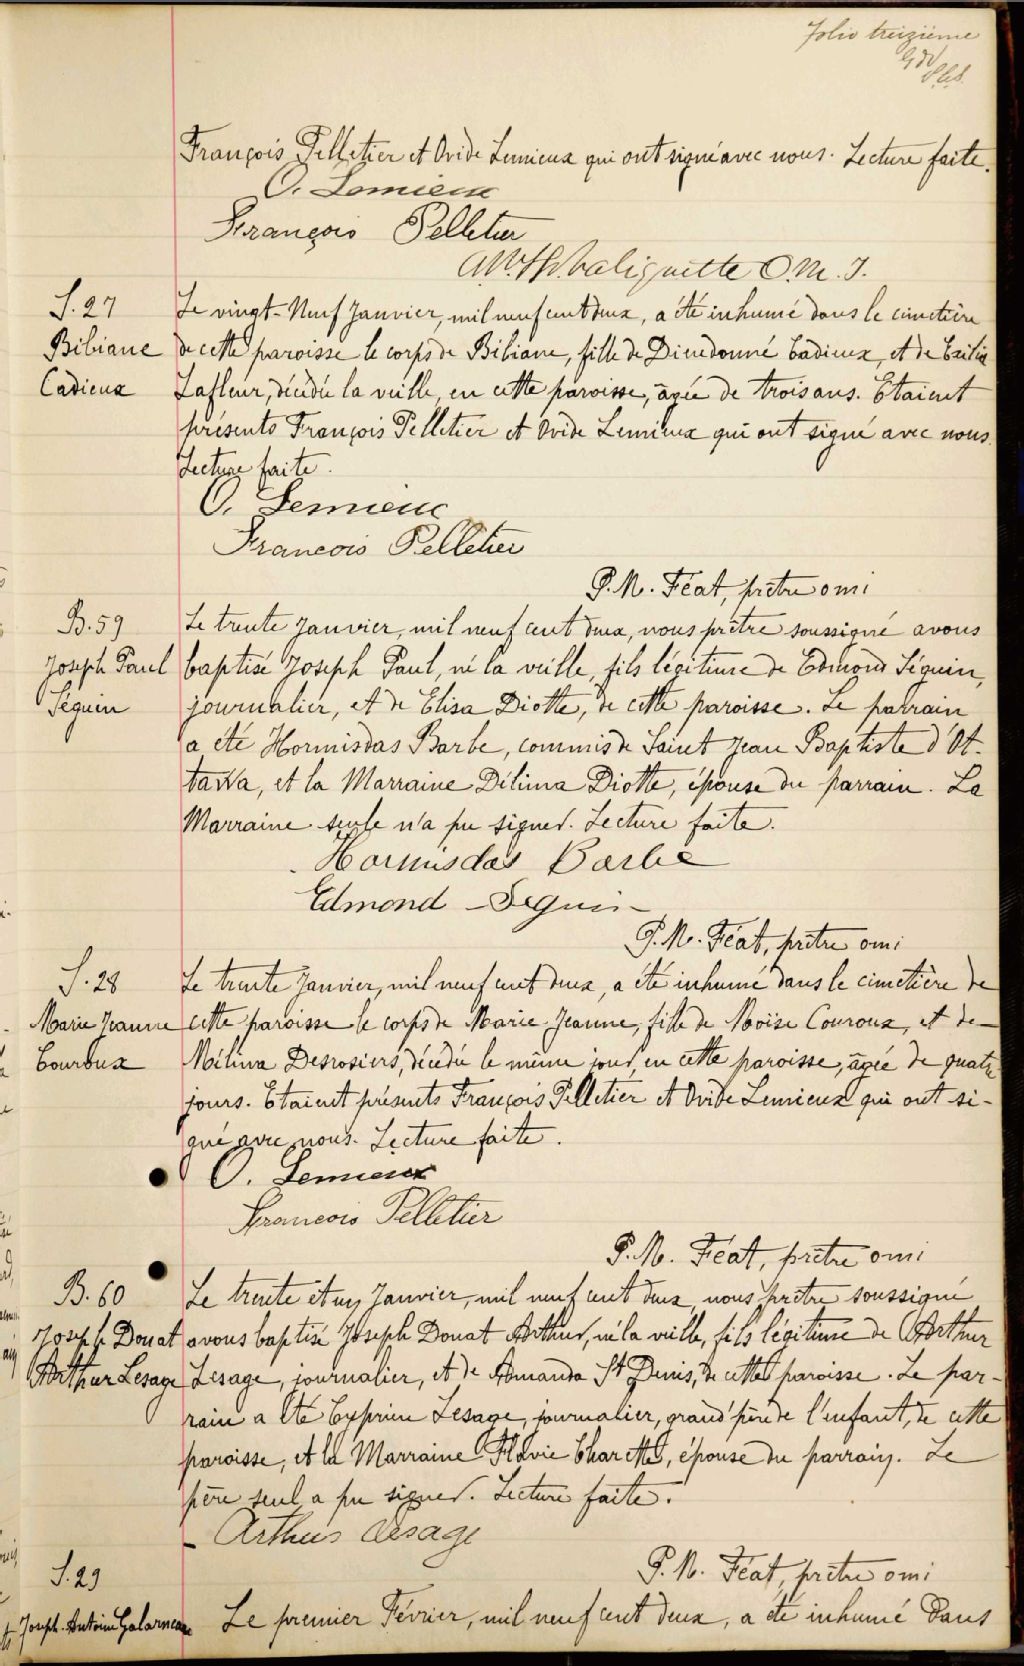 Folio treizième
François Pelletier et Ovide Lemieux qui ont signé avec nous. Lecture faite.
O. Lemieux
François Pelletier
Valiquette O.M.I.
S. 27
Bibiane
Cadieux
Le vingt-Neuf Janvier, mil neuf cent deux, a été inhumé dans le cimetière
de cette paroisse le corps de Bibiane, fille de Dieudonné Cadieux, et de Exilia
Lafleur, décédée la veille, en cette paroisse, âgée de trois ans. Etaient
présents François Pelletier et Ovide Lemieux qui ont signé avec nous.
Lecture faite.
O. Lemieux
Francois Pelletier
P.M. Féat, prêtre omi
B. 59
Joseph Paul
Séguin
Le trente Janvier, mil neuf cent deux, nous prêtre soussigné avons
baptisé Joseph Paul, né la veille, fils légitime de Edmond Séguin,
journalier, et de Elisa Diotte, de cette paroisse. Le parrain
a été Hormisdas Barbe, commis de Saint Jean Baptiste d'Ot-
tawa, et la Marraine Délima Diotte, épouse du parrain. La
Marraine seule n'a pu signer. Lecture faite.
Hormisdas Barbe
Edmond Seguin
P.M. Féat, prêtre omi
S. 28
Marie Jeanne
Couroux
Le trente Janvier, mil neuf cent deux, a été inhumé dans le cimetière de
cette paroisse le corps de Marie Jeanne, fille de Moïse Couroux, et de
Mélina Desrosiers, décédée le même jour, en cette paroisse, âgée de quatre
jours. Etaient présents François Pelletier et Ovide Lemieux qui ont si-
gné avec nous. Lecture faite.
O. Lemieux
Francois Pelletier
P.M. Féat, prêtre omi
B. 60
Joseph Donat
Arthur Lesage
Le trente et un Janvier, mil neuf cent deux, nous prêtre soussigné
avons baptisé Joseph Donat Arthur, né la veille, fils légitime de Arthur
Lesage, journalier, et de Amanda St Denis, de cette paroisse. Le par-
rain a été Cyprien Lesage, journalier, grand'père de l'enfant, de cette
paroisse, et la Marraine Flavie Charette, épouse du parrain. Le
père seul a pu signer. Lecture faite.
Arthur Lesage
P.M. Féat, prêtre omi
S. 29
Joseph-Antoine Galarneau
Le premier Février, mil neuf cent deux, a été inhumé dans